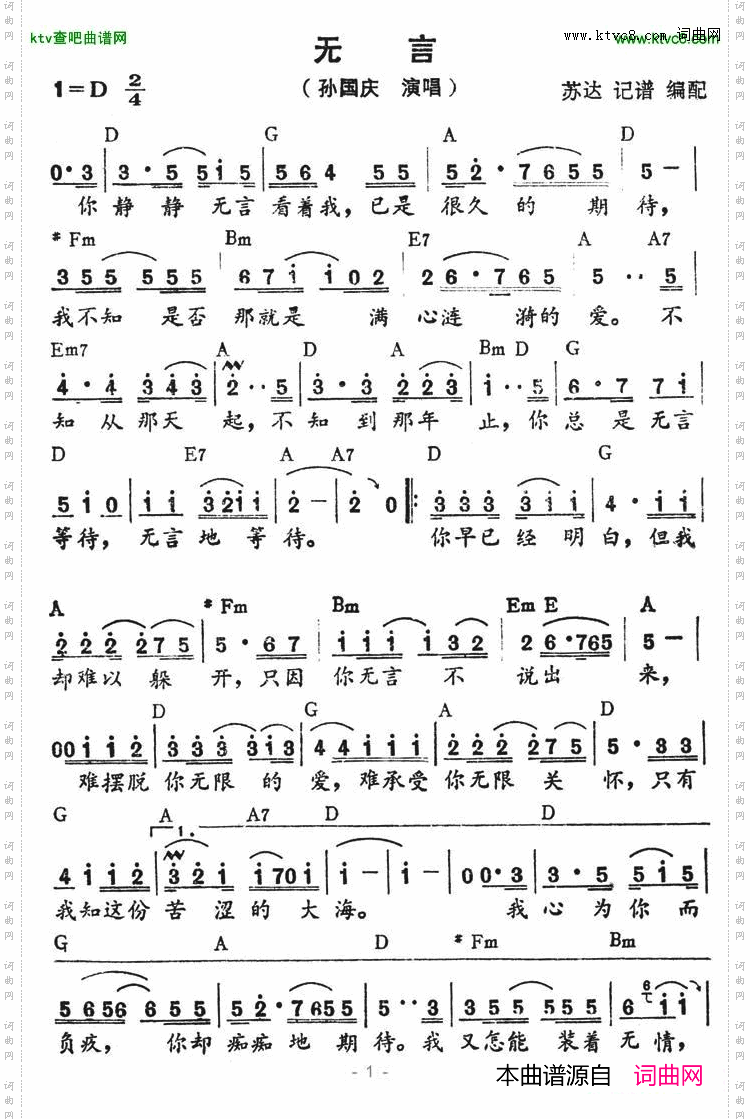 ktv查吧曲谱网
www.ktvc8.com 词曲网
www.ktvc8.com
无 言
1=D 2/4
（孙国庆 演唱）
苏达 记谱 编配
D G A D
0·3 3·5 5 1 5 5 6 4 5 5 5 2·7 6 5 5 5 —
你静静无言看着我，已是很久的期待，
#Fm Bm E7 A A7
3 5 5 5 5 5 6 7 1 1 0 2 2 6·7 6 5 5 5 ·· 5
我不知是否那就是满心涟漪的爱。不
Em7 A D A Bm D G
4·4 3 4 3 2 ·· 5 3·3 2 2 3 1 ·· 5 6·7 7 1
知从那天起，不知到那年止，你总是无言
D E7 A A7 D G
5 1 0 1 1 3 2 1 1 2 — 2 0 3 3 3 3 1 1 4·1 1
等待，无言地等待。你早已经明白，但我
A #Fm Bm Em E A
2 2 2 2 7 5 5·6 7 1 1 1 1 3 2 2 6·7 6 5 5 —
却难以躲开，只因你无言不说出来，
D G A D
0 0 1 1 2 3 3 3 3 1 3 4 4 1 1 1 2 2 2 2 7 5 5·3 3
难摆脱你无限的爱，难承受你无限关怀，只有
G A A7 D D
1.
4 1 1 2 3 2 1 1 7 0 1 1 — 1 — 0 0·3 3·5 5 1 5
我知这份苦涩的大海。我心为你而
G A D #Fm Bm
5 6 5 6 6 5 5 5 2·7 6 5 5 5 ·· 3 3 5 5 5 5 5 6 1 1
负疚，你却痴痴地期待。我又怎能装着无情，
- 1 -
本曲谱源自 词曲网